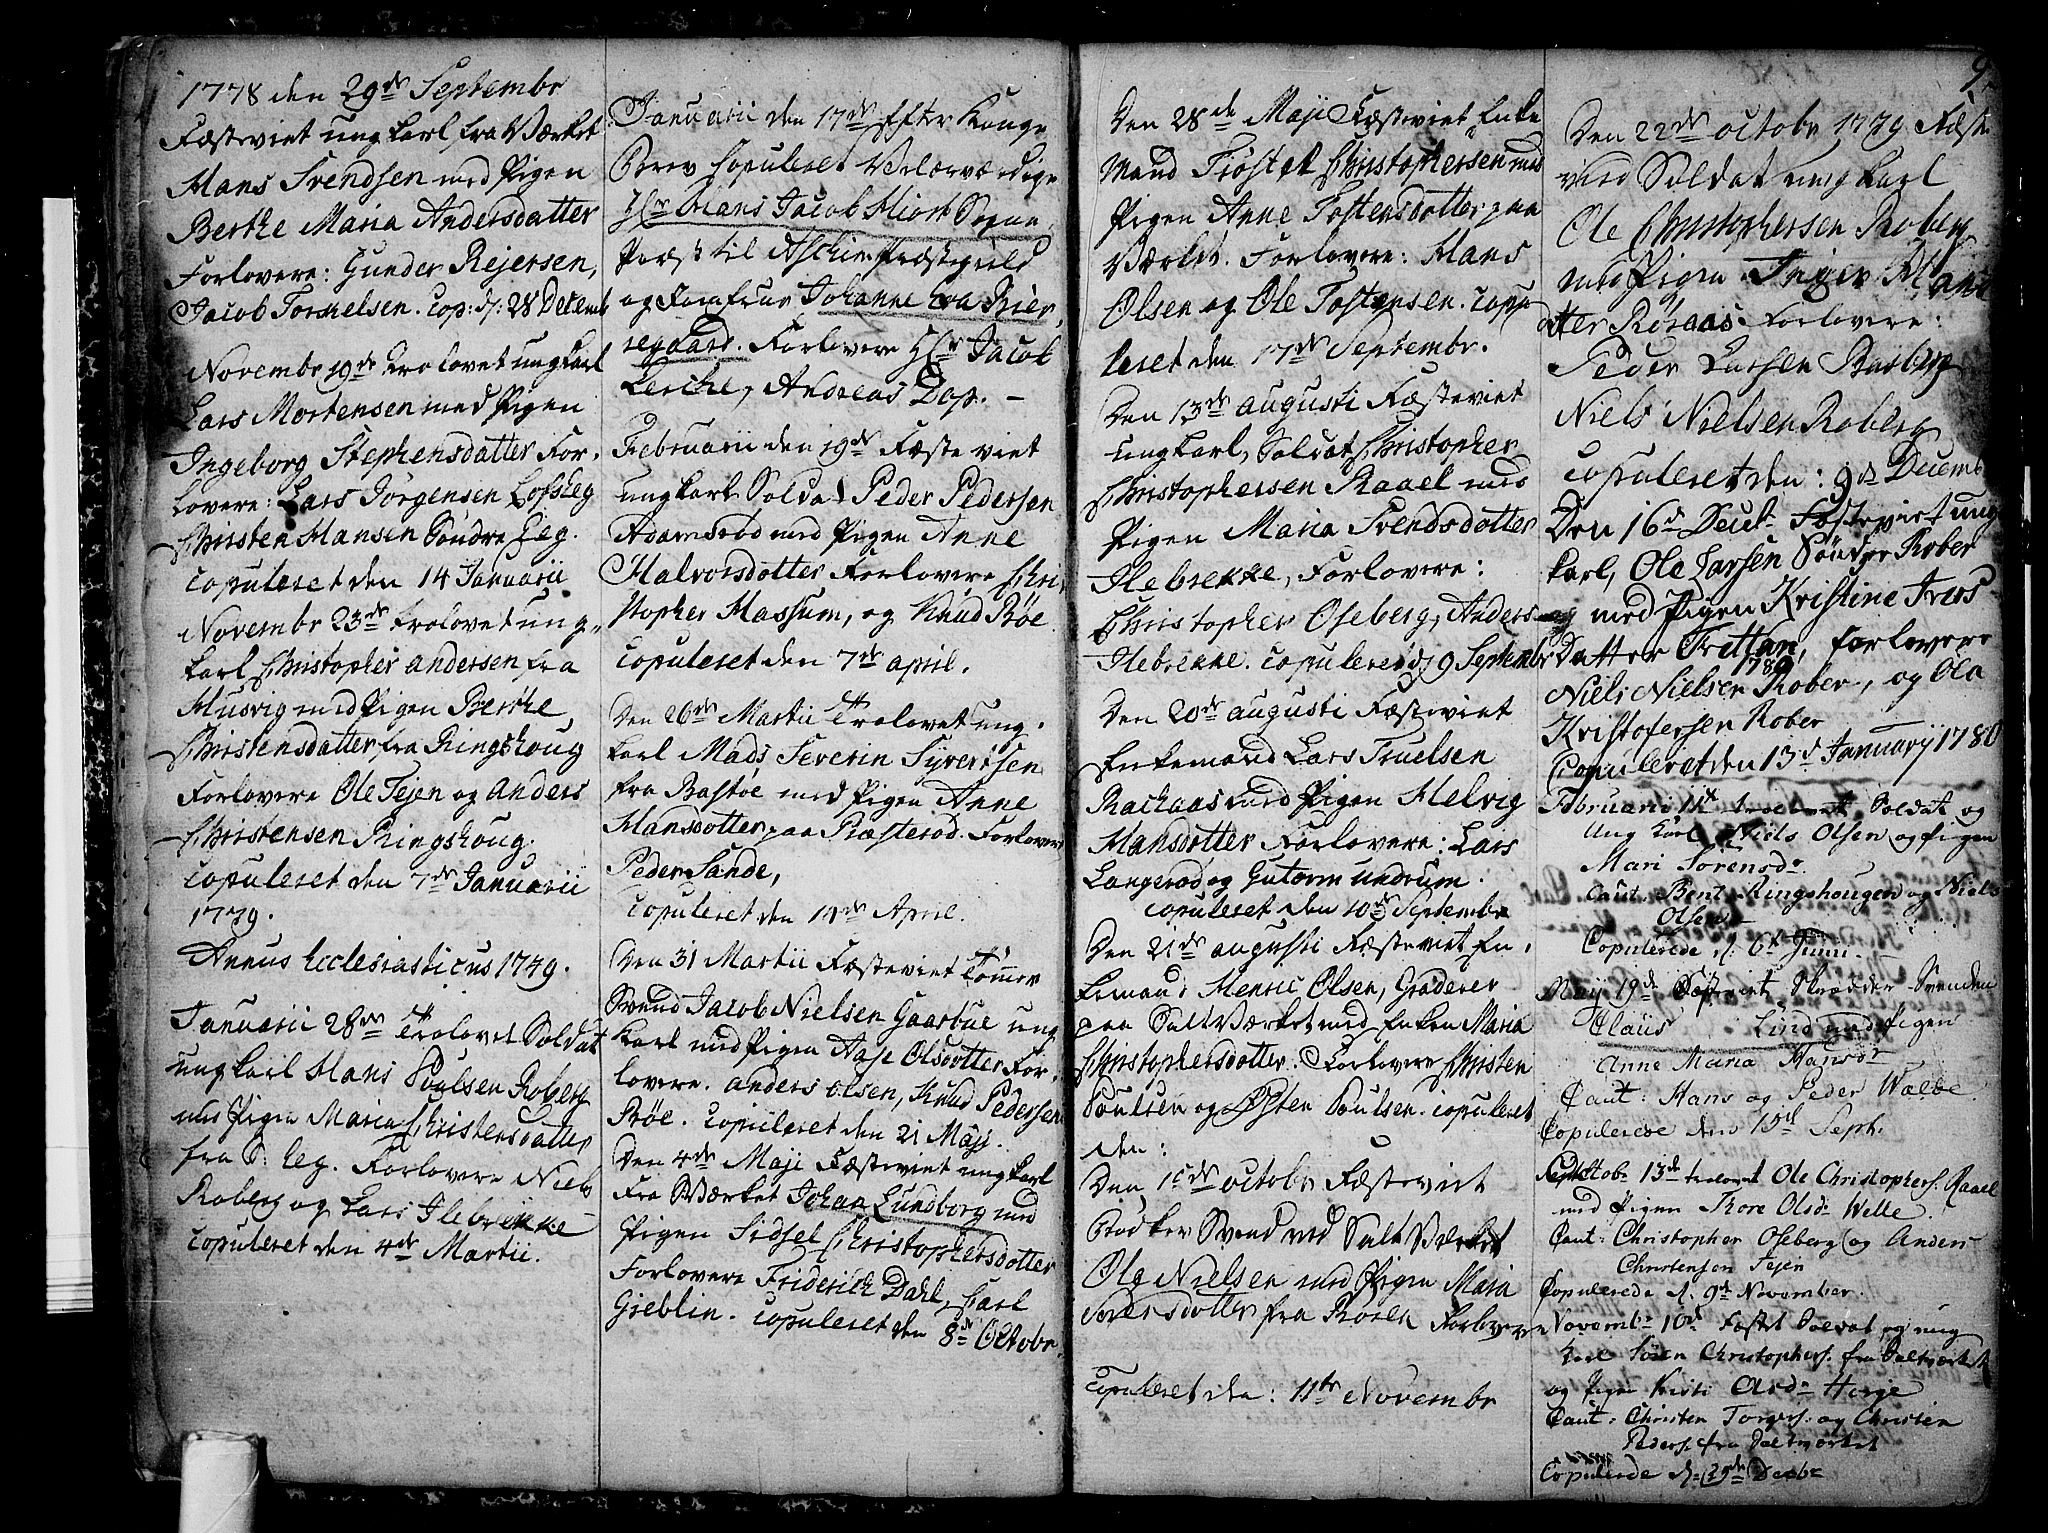 1778 den 29de Septembr
Fæsteviet ungkarl fra Værket
Hans Svendsen med Pigen
Berthe Maria Andersdatter
Forlovere: Gunder Rejersen,
Jacob Torkelsen. cop: d: 28 Decemb
Novembr 19de Trolovet ungkarl
Lars Mortensen med Pigen
Ingeborg Stephensdatter For-
lovere: Lars Jörgensen Lofsleg
Christen Hansen Söndre Eeg.
copuleret den 14 Januarii
Novembr 23de trolovet ung-
karl Christopher andersen fra
Husvig med Pigen Berthe
Christensdatter fra Ringshoug
Forlovere Ole Tejen og anders
Christensen Ringshoug.
copuleret den 7de Januarii
1779.
Annus Ecclesiasticus 1779.
Januarii 28de Trolovet Soldat
ungkarl Hans Poulsen Roberg
med Pigen Maria Christensdatter
fra S: Eeg. Forlovere Niels
Roberg og Lars Ilebrekke
copuleret den 4de Martii.
Januarii den 17de Efter Konge
Brev Copuleret Velærværdige
Hr Hans Jacob Hiort Sogne
Præst til Aschim Præstegield
og Jomfrue Johanne Bier
regaard. Forlovere Hr Jacob
Lerche, Andreas Dop. –
Februarii den 19de Fæsteviet
ungkarl Soldat Peder Pedersen
Adamsrød med Pigen Anne
Halvorsdotter Forlovere Chri
stopher Massum, og Knud Bøe
copuleret den 7de april.
Den 26de Martii Trolovet ung-
karl Mads Severin Syvertsen
fra Bastøe med Pigen Anne
Hansdotter paa Præsterød. Forlovere
Peder Sande,
copuleret den 14de April.
Den 31 Martii Fæsteviet Tømmer
Svend Jacob Nielsen Gaarbue ung
karl med Pigen Aase Olsdotter For-
lovere. anders olsen, Knud Pedersen
Bøe. copuleret den 21 Maji.
Den 4de Maji Fæsteviet ungkarl
Fra Værket Johan Lundborg med
Pigen Sidsel Christophersdotter
Forlovere Friderich Dahl, Carl
Greblin. copuleret den 8de Octobr.
Den 28de Maji Fæsteviet Enke
mand Tröster Christophersen med
Pigen Anne Tostensdotter paa
Værket. Forlovere: Hans
Olsen og Ole Tostensen. copu
leret den 17de Septembr.
Den 13de augusti Fæsteviet
ungkarl, Soldat Christopher
Christophersen Raael med
Pigen Maria Svendsdotter
Ilebrekke, Forlovere:
Christopher Oseberg, Anders
Ilebrekke. copuleret d 9 Septembr
Den 20de augusti Fæsteviet
Enkemand Lars Truelsen
Backaas med Pigen Helvig
Hansdotter Forlovere: Lars
Langerød og Gutorm Undrum.
copuleret den 10de Septembr
Den 21de augusti Fæsteviet En-
kemand Henric Olsen, Graderer
paa Salt Værket med Enken Maria
Christophersdotter. Forlovere Christen
Poulsen og Østen Poulsen. copuleret
den:
Den 1ste octobr Fæsteviet
Bødker Svend ved Salt Værket
Ole Nielsen med Pigen Maria
Sörensdotter fra Roren Forlovere
copuleret den: 11te Novembr
9
Den 22de octobr 1779 Fæste
viet Soldat ung karl
Ole Christophersen Roberg
med Pigen Inger Hansd
atter Röraas. Forlovere:
Peder Larsen Basberg
Niels Nielsen Roberg
copuleret den: 9d Decemb
Den 16d Decb. Festeviet ung
karl, Ole Larsen Sönder Rober
og med Pigen Kristine Ivers
Datter Trettan, forlovere
1780
Niels Nielsen Rober, og Ola
Kristofersen Rober
Copuleret den 13d January 1780
Februario 11t trolovet Soldat og
Ung Karl Niels Olsen og Pigen
Mari Sorensdr
Caut. Bent Ringshougen og Niels
Olsen
Copulerede d. 6t Junii.
Maij 19de Festeviet Skrædder-Svenden
Claüs Lind med Pigen
Anne Maria Hansdr
Caut: Hans og Peder Walbe
Copulerede den 15d Sept.
Septbr 13de trolovet Ole Christophers. Raael
med Pigen Thore Olsdr Welle
Caut: Christopher Oseberg og Anders
Christensen Tejen
Copulerede d. 9d November.
Novembr 10d Festet Soldat og ung
Karl Søren Christophers. fra Saltværket
og Pigen Kirsti Olsdr Herje
Caut: Christen Torgers. og Christen
Peders. fra Saltværket
Copulerede d. 29de Decbr